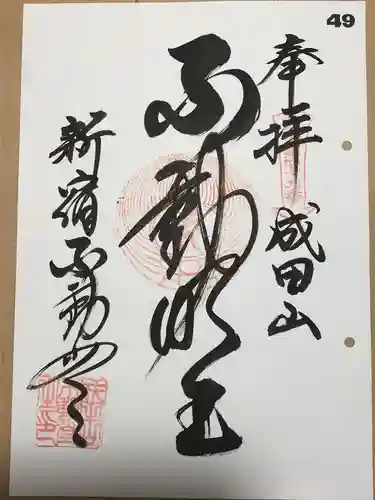 49
奉拝 成田山
不動明王
新宿不動堂